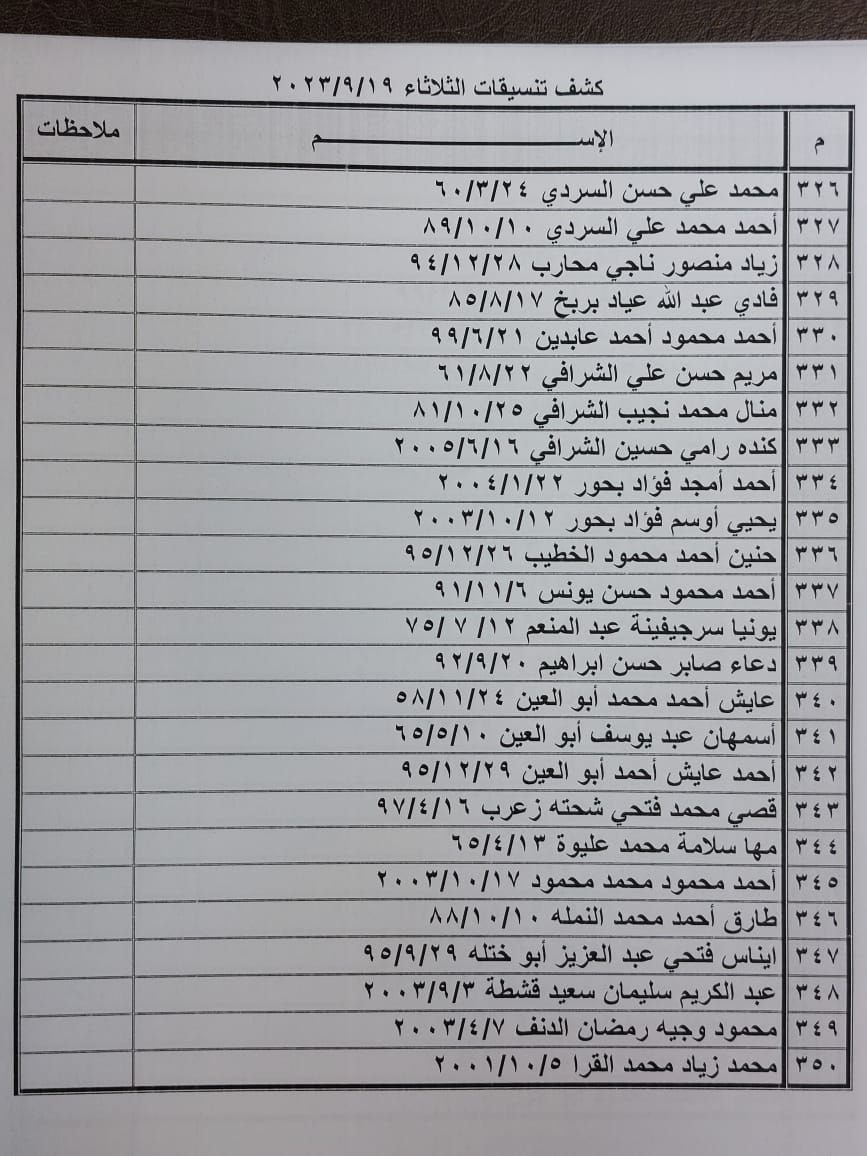 كشف تنسيقات الثلاثاء ٢٠٢٣/٩/١٩
م الإســـــــــم ملاحظات
٣٢٦ محمد علي حسن السردي ٦٠/٣/٢٤
٣٢٧ أحمد محمد علي السردي ٨٩/١٠/١٠
٣٢٨ زياد منصور ناجي محارب ٩٤/١٢/٢٨
٣٢٩ فادي عبد الله عياد بربخ ٨٥/٨/١٧
٣٣٠ أحمد محمود أحمد عابدين ٩٩/٦/٢١
٣٣١ مريم حسن علي الشرافي ٦١/٨/٢٢
٣٣٢ منال محمد نجيب الشرافي ٨١/١٠/٢٥
٣٣٣ كنده رامي حسين الشرافي ٢٠٠٥/٦/١٦
٣٣٤ أحمد أمجد فؤاد بحور ٢٠٠٤/١/٢٢
٣٣٥ يحيي أوسم فؤاد بحور ٢٠٠٣/١٠/١٢
٣٣٦ حنين أحمد محمود الخطيب ٩٥/١٢/٢٦
٣٣٧ أحمد محمود حسن يونس ٩١/١١/٦
٣٣٨ يونيا سرجيفينة عبد المنعم ٧٥/٧/١٢
٣٣٩ دعاء صابر حسن ابراهيم ٩٢/٩/٢٠
٣٤٠ عايش أحمد محمد أبو العين ٥٨/١١/٢٤
٣٤١ أسمهان عبد يوسف أبو العين ٦٥/٥/١٠
٣٤٢ أحمد عايش أحمد أبو العين ٩٥/١٢/٢٩
٣٤٣ قصي محمد فتحي شحته زعرب ٩٧/٤/١٦
٣٤٤ مها سلامة محمد عليوة ٦٥/٤/١٣
٣٤٥ أحمد محمود محمد محمود ٢٠٠٣/١٠/١٧
٣٤٦ طارق أحمد محمد النمله ٨٨/١٠/١٠
٣٤٧ ايناس فتحي عبد العزيز أبو ختله ٩٥/٩/٢٩
٣٤٨ عبد الكريم سليمان سعيد قشطة ٢٠٠٣/٩/٣
٣٤٩ محمود وجيه رمضان الدنف ٢٠٠٣/٤/٧
٣٥٠ محمد زياد محمد القرا ٢٠٠١/١٠/٥